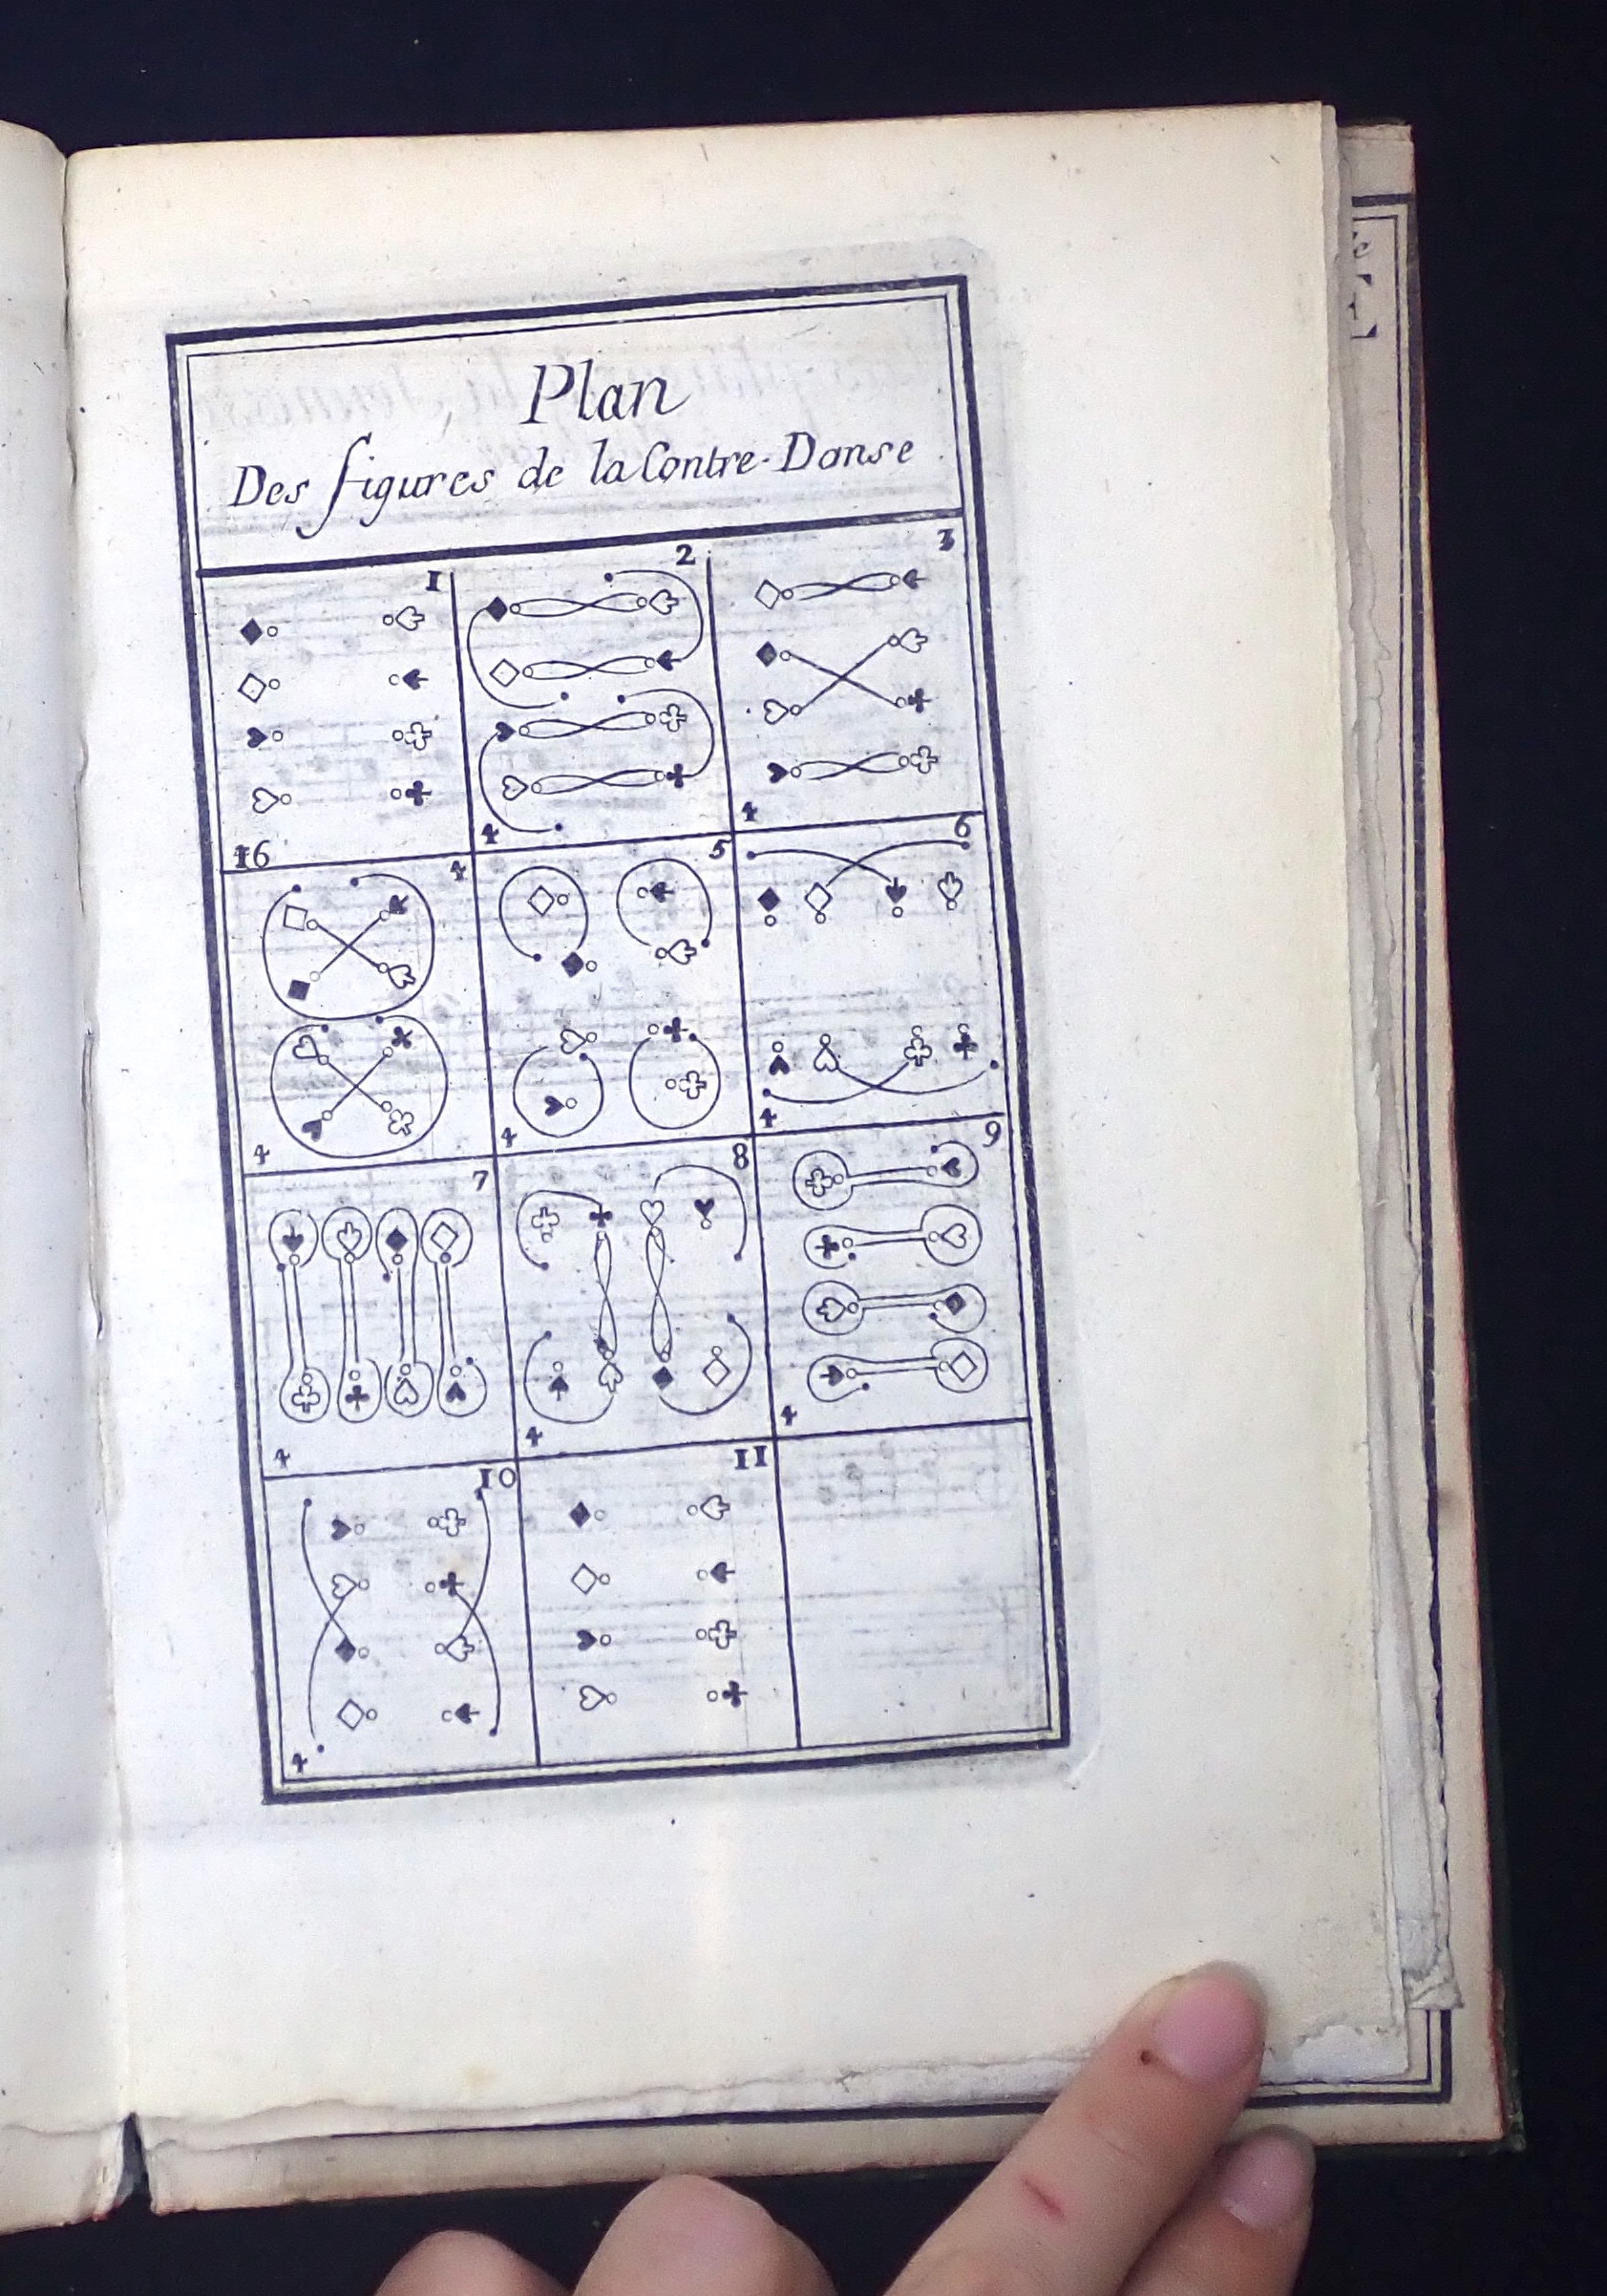 Plan
Des figures de la Contre-Danse.
1 2 3
16 4 4
4 5 6
4 4 4
7 8 9
4 4 4
10 11
4